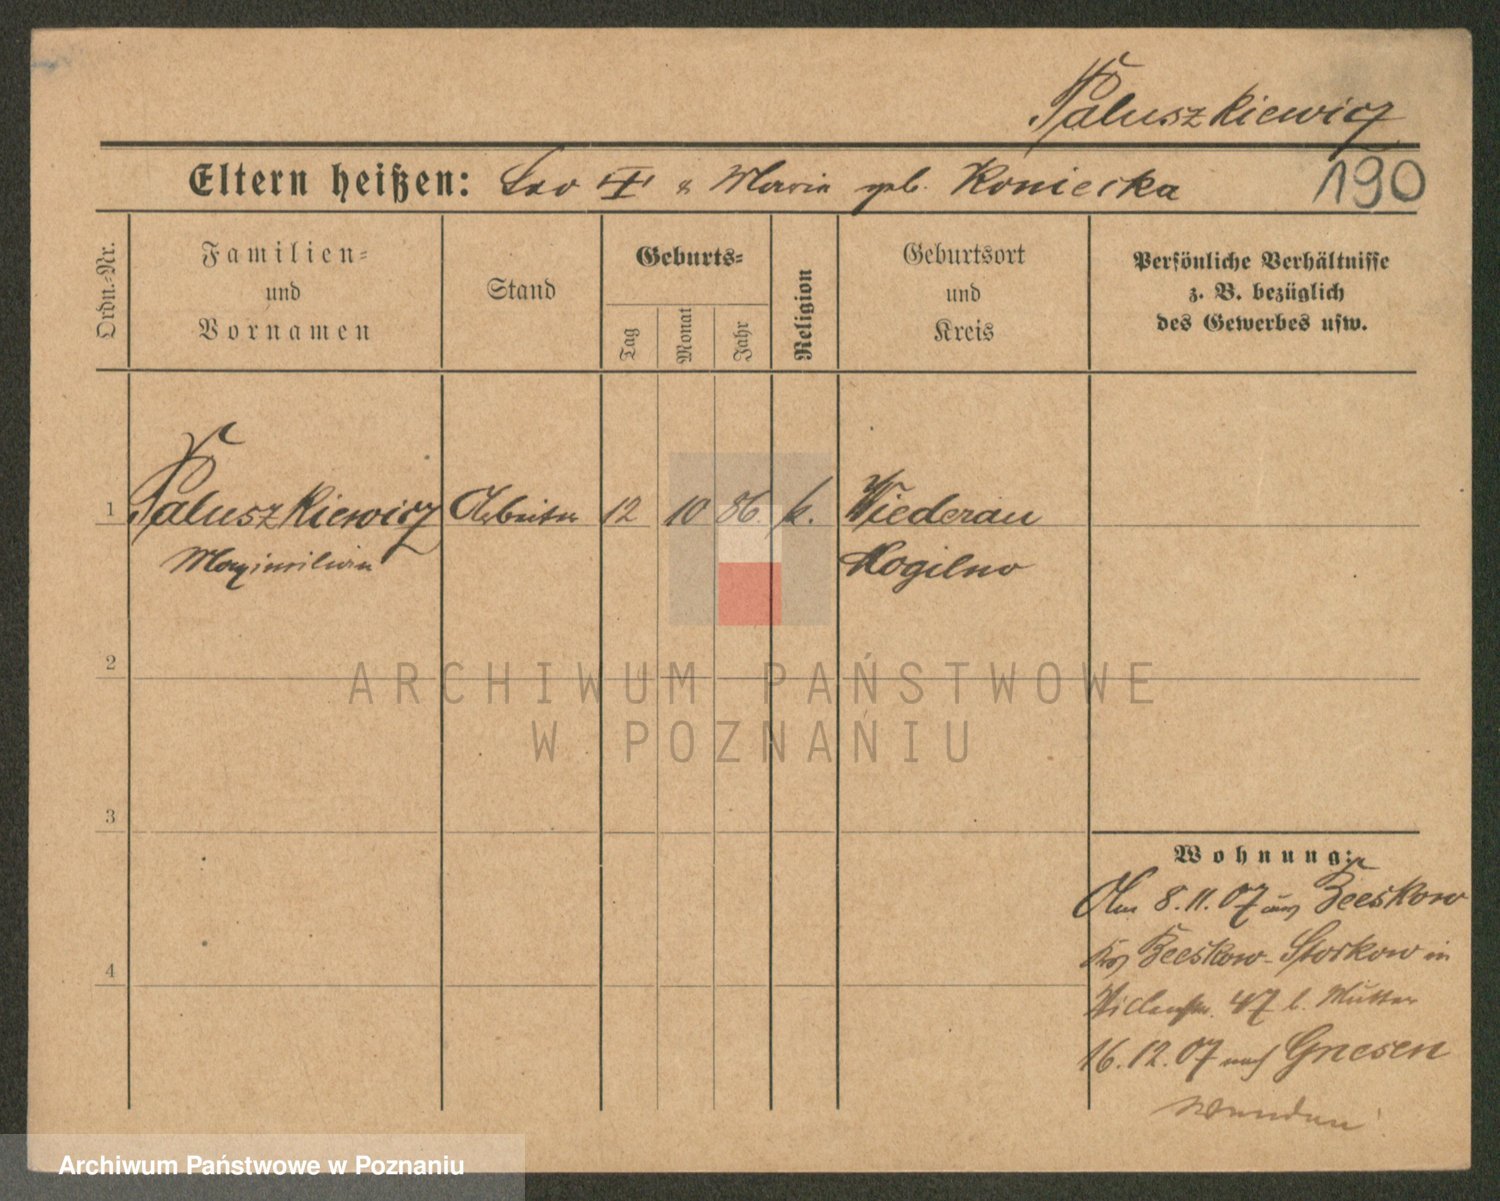 Paluszkiewicz
Eltern heißen: Leo ✝ & Maria geb. Koniecka 190
Ordn.-Nr.
Familien-
und
Vornamen
Stand
Geburts-
Tag
Monat
Jahr
Religion
Geburtsort
und
Kreis
Persönliche Verhältnisse
z. B. bezüglich
des Gewerbes usw.
1 Paluszkiewicz Arbeiter 12 10 86. k. Wiederau
Maximilian Mogilno
2
ARCHIWUM PAŃSTWOWE
W POZNANIU
3
Wohnung:
Am 8.11.07 aus Beeskow
Krs Beeskow-Storkow in
47 b. Mutter
16.12.07 nach Gnesen
4
wenden
Archiwum Państwowe w Poznaniu